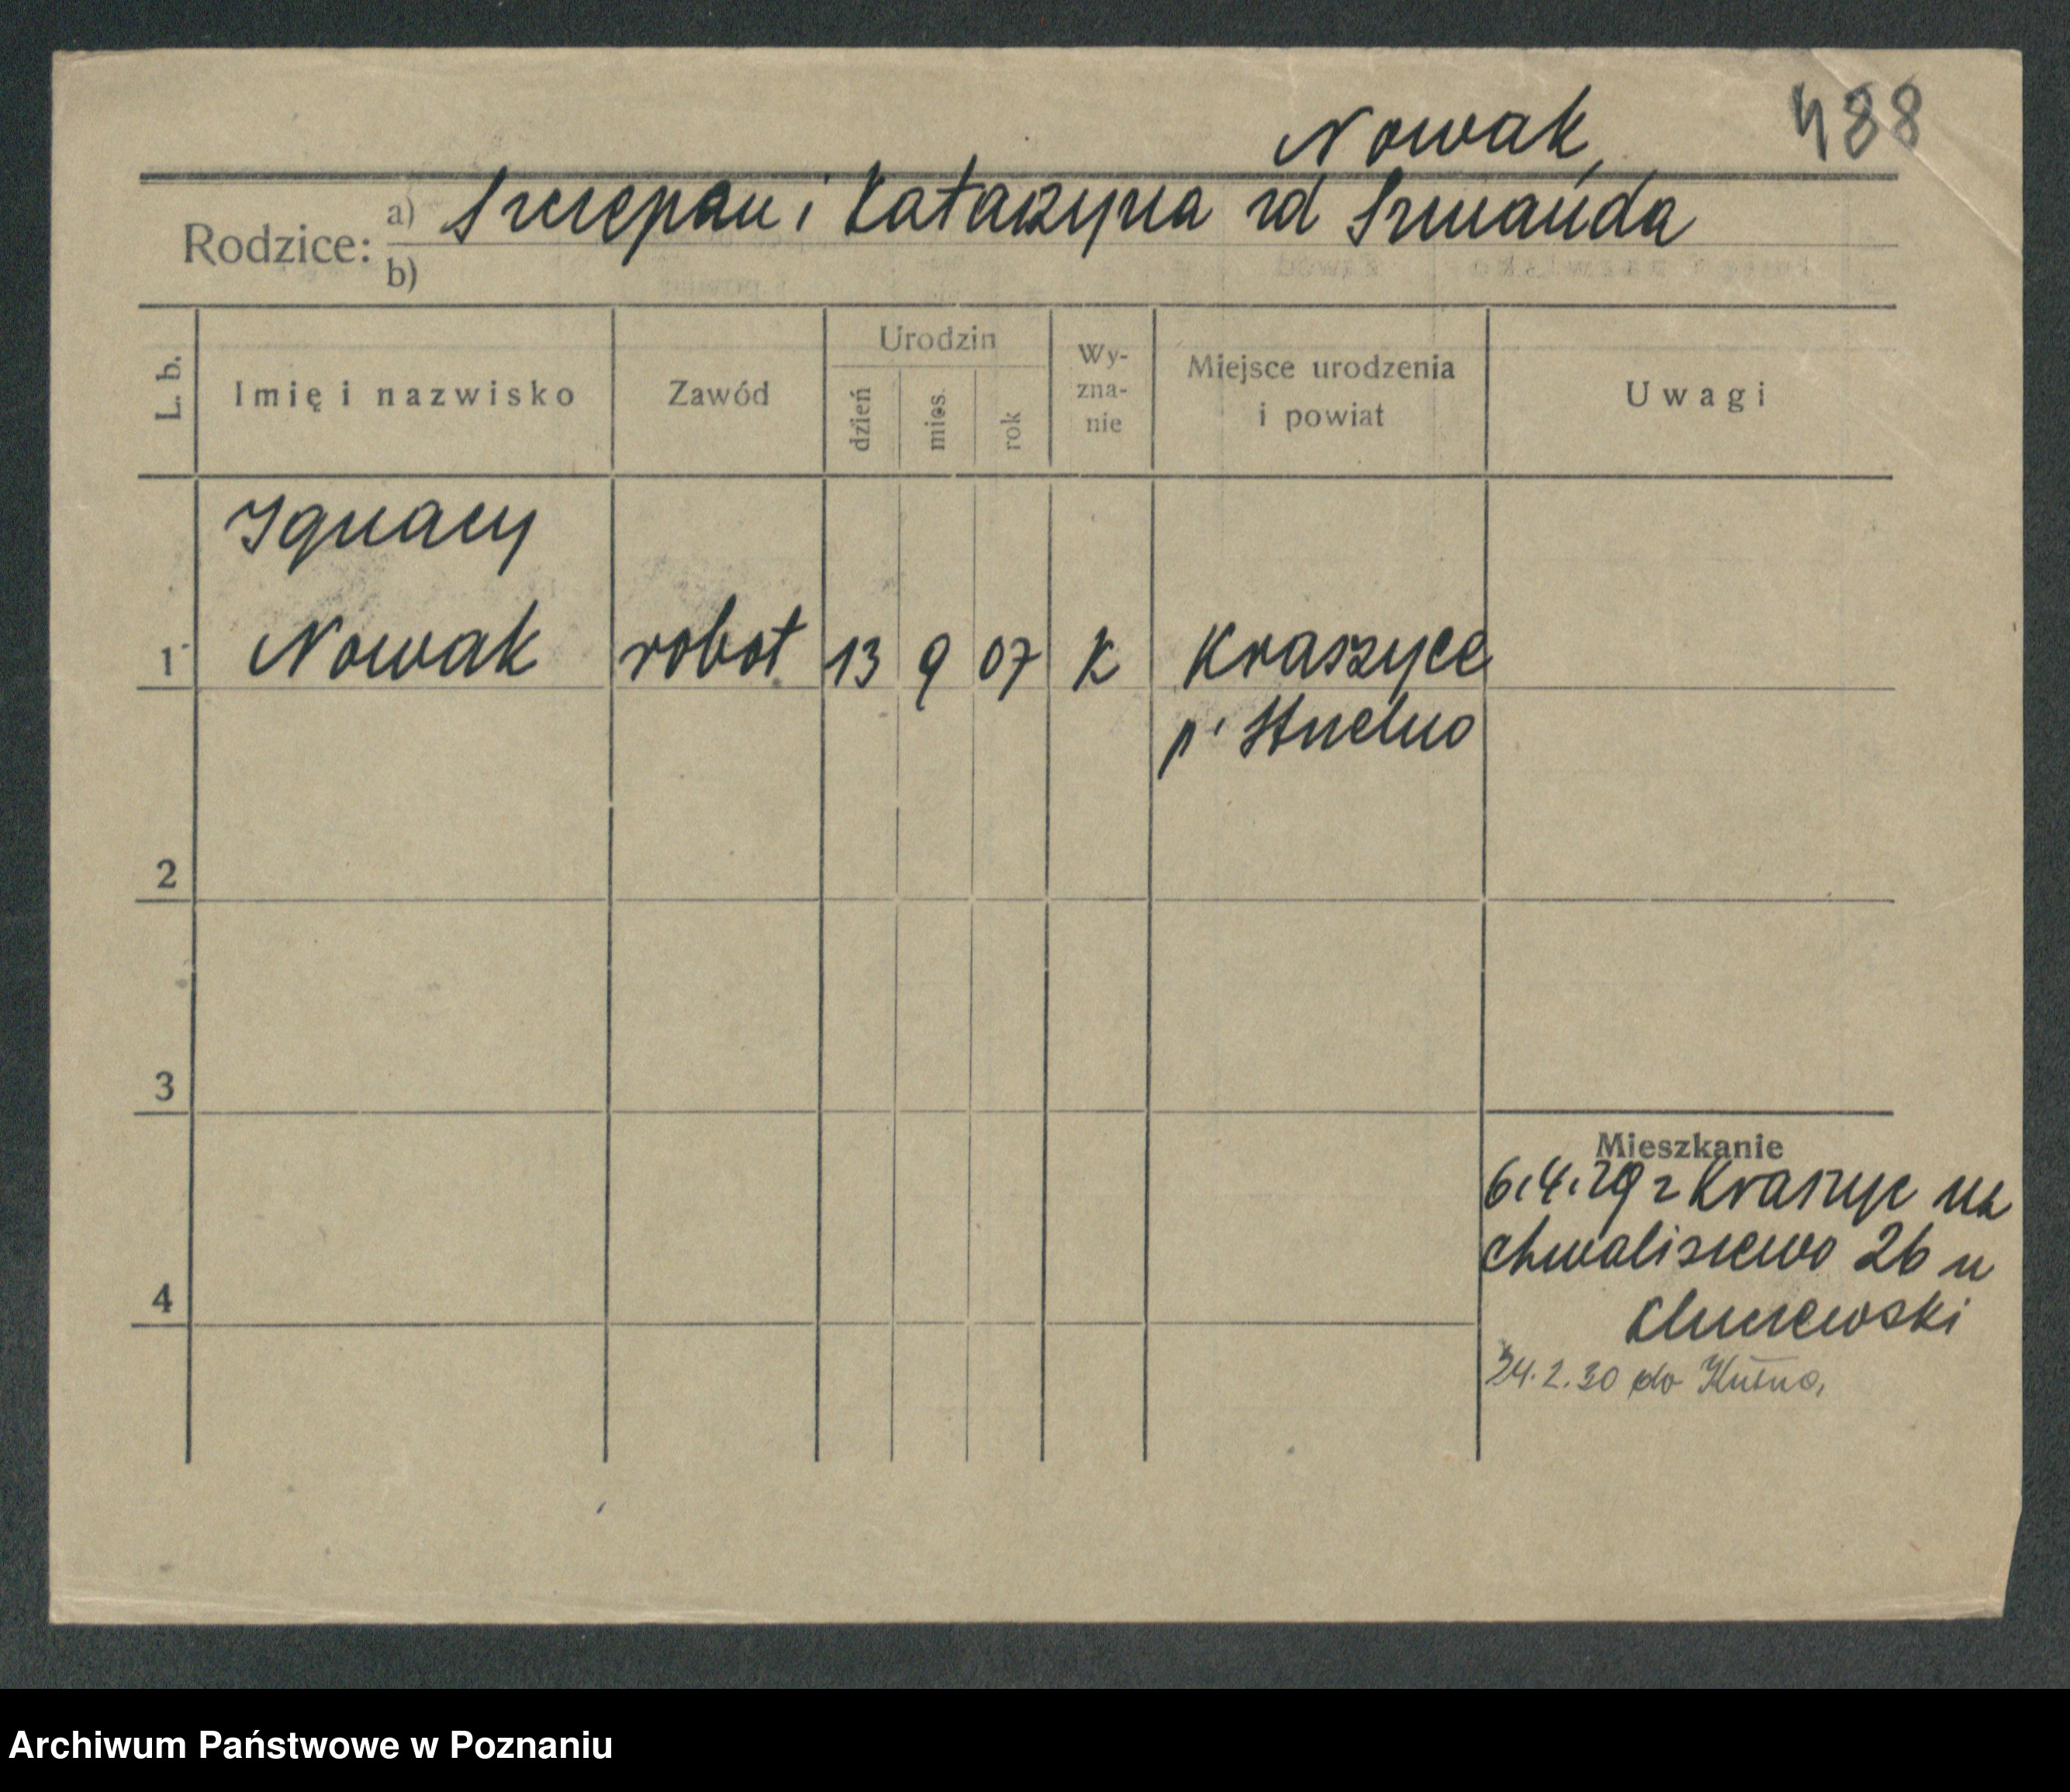 488
Nowak,
Rodzice: a) Szczepan i Katarzyna zd Szmańda
b)
L. b.
Imię i nazwisko
Zawód
Urodzin
dzień
mies.
rok
Wy-
zna-
nie
Miejsce urodzenia
i powiat
Uwagi
Ignacy
1 Nowak robot 13 9 07 K Kraszyce
p. Strzelno
2
3
Mieszkanie
6.4.29 z Kraszyc na
Chwaliszewo 26 u
4
24.2.30 do Kutna,
Archiwum Państwowe w Poznaniu